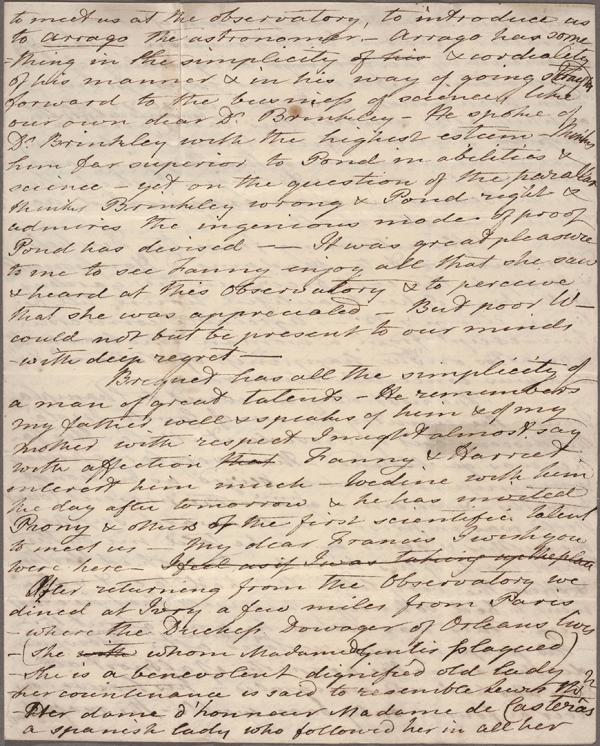 to meet us at the observatory, to introduce us
to Arrago the astronomer – Arrago has some
-thing in the simplicity of his & cordiality
of his manner & in his way of going straight
forward to the business of science, like
our own dear Dr. Brinkley – He spoke of
Dr. Brinkley with the highest esteem – thinks
him far superior to Pond in abilities &
science – yet on the question of the parallax
thinks Brinkley wrong & Pond right &
admires the ingenious mode of proof
Pond has devised – It was great pleasure
to me to see Fanny enjoy all that she saw
& heard at this Observatory & to perceive
that she was appreciated – But poor W–
could not but be present to our minds
– with deep regret –
Breguet has all the simplicity of
a man of great talents – He remembers
my father well & speaks of him & of my
mother with respect I might almost say
with affection that Fanny & Harriet
interest him much – We dine with him
the day after tomorrow & he has invited
Prony & others of the first scientific talent
to meet us – My dear Francis I wish you
were here – I feel as if I was taking up the place
After returning from the Observatory we
dined at Ivry a few miles from Paris
– where the Duchess Dowager of Orleans lives
(She with whom Madame Genlis plagued)
She is a benevolent dignified old lady
her countenance is said to resemble Lewis the
Her dame d'honneur Madame de Casteras
a spanish lady who followed her in all her